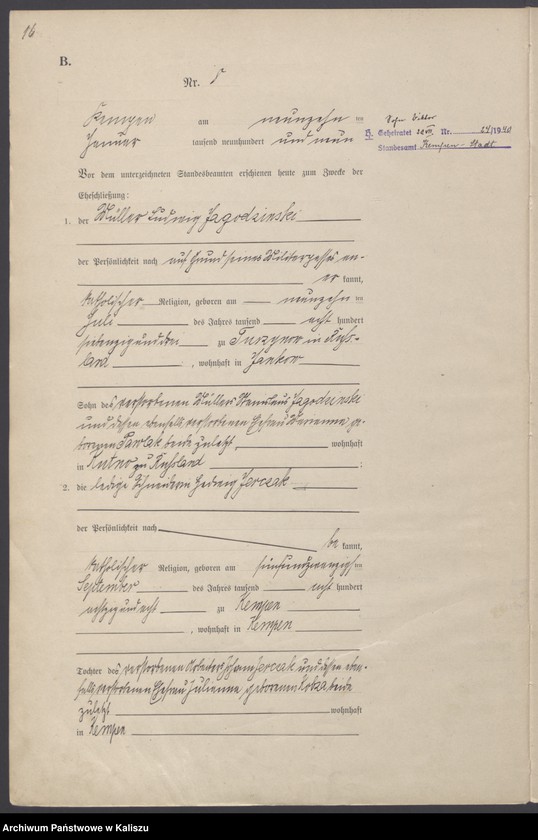 16
B.
Nr. 5
Kempen am neunzehn ten
Januar tausend neunhundert und neun
Sohn Viktor
B. Geheiratet Nr. 24/1940
Standesamt Kempen-Stadt
Vor dem unterzeichneten Standesbeamten erschienen heute zum Zwecke der
Eheschließung:
1. der Müller Ludwig Jagodzinski
der Persönlichkeit nach auf Grund seines Militärpasses an-
er kannt,
katholischer Religion, geboren am neunzehn ten
Juli des Jahres tausend acht hundert
siebenzig und drei zu in Ruß-
land, wohnhaft in Jankow
Sohn des verstorbenen Müllers Jagodzinski
und dessen ebenfalls verstorbenen Ehefrau Marianna, ge-
borenen Pawlak beide zuletzt wohnhaft
in Kutno zu Rußland;
2. die ledige Schneiderin Hedwig Jerczak
der Persönlichkeit nach
be kannt,
katholischer Religion, geboren am fünfundzwanzigsten
September des Jahres tausend acht hundert
achtzig und acht zu Kempen
, wohnhaft in Kempen
Tochter des verstorbenen Arbeiters Johann Jerczak und dessen eben-
falls verstorbenen Ehefrau Julianna, geborenen beide
zuletzt wohnhaft
in Kempen
Archiwum Państwowe w Kaliszu